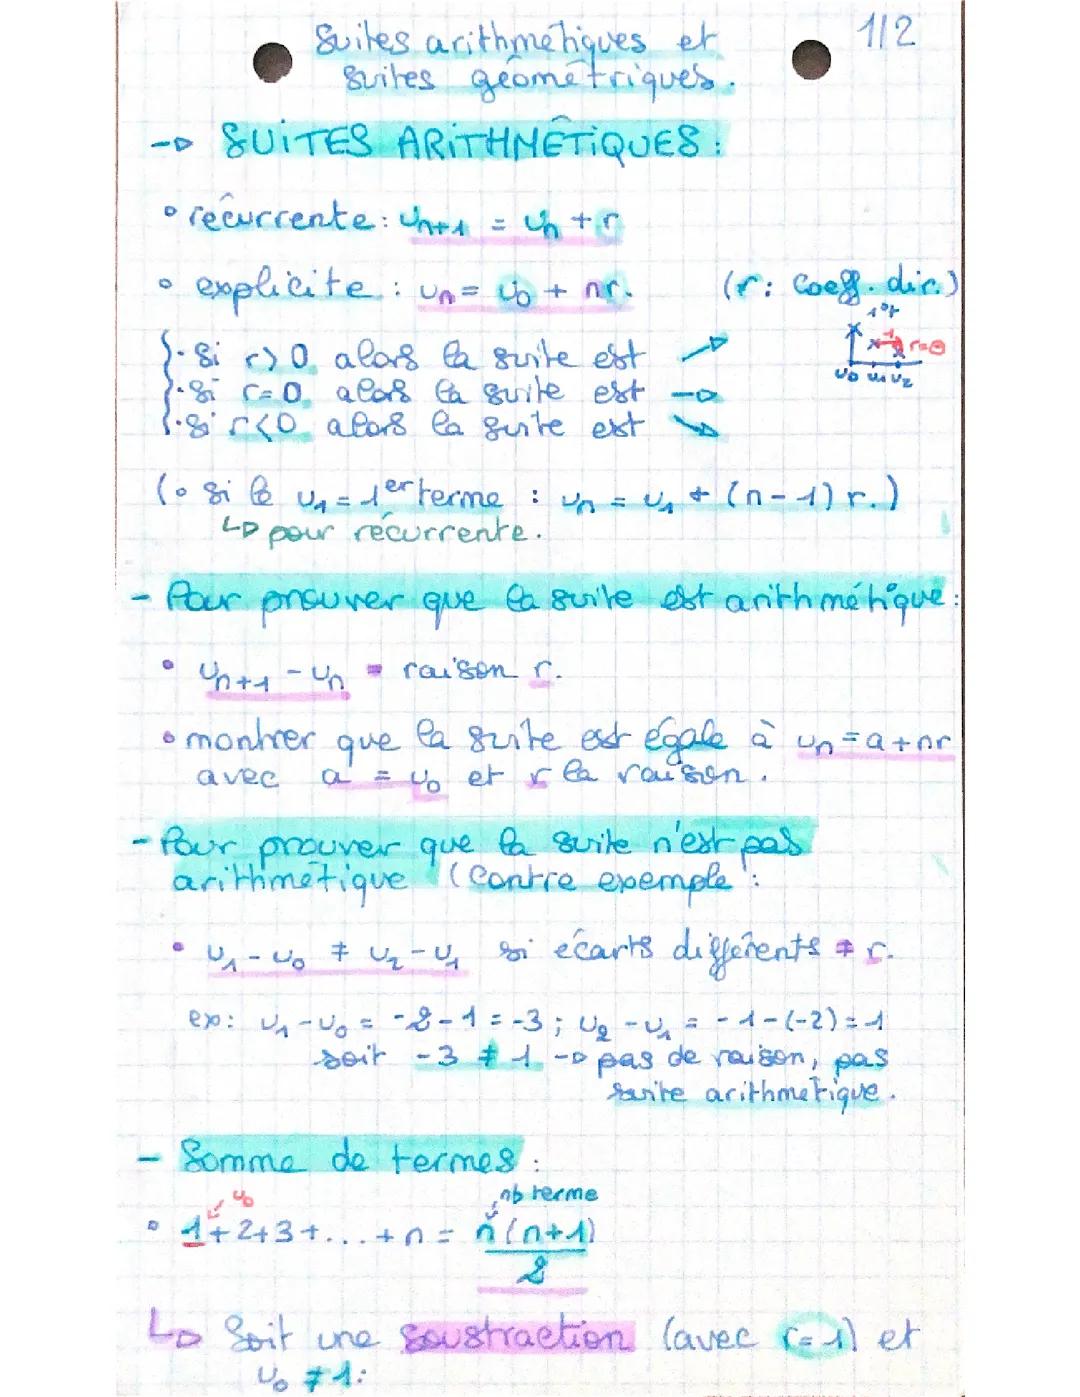 1/2
Suites arithmétiques et
suites géométriques.
-> SUITES ARITHMÉTIQUES :
• récurrente : Un+1 = Un + r
• explicite : un = u0 + nr. (r : coeff. dir.)
{ · Si r > 0 alors la suite est ↗
{ · Si r = 0 alors la suite est →
{ · Si r < 0 alors la suite est ↘
u0 u1 u2
(• si le u1 = 1er terme : un = u1 + (n-1) r.)
↳ pour récurrente.
- Pour prouver que la suite est arithmétique :
• un+1 - un = raison r.
• montrer que la suite est égale à un = a + nr
avec a = u0 et r la raison.
- Pour prouver que la suite n'est pas
arithmétique (contre exemple :
• u1 - u0 ≠ u2 - u1 si écarts différents ≠ r.
ex : u1 - u0 = -2 - 1 = -3 ; u2 - u1 = -1 - (-2) = 1
soit -3 ≠ 1 -> pas de raison, pas
suite arithmétique.
- Somme de termes :
u0 nb terme
• 1 + 2 + 3 + ... + n = n(n+1)
2
↳ Soit une soustraction (avec r = 1) et
u0 ≠ 1 :